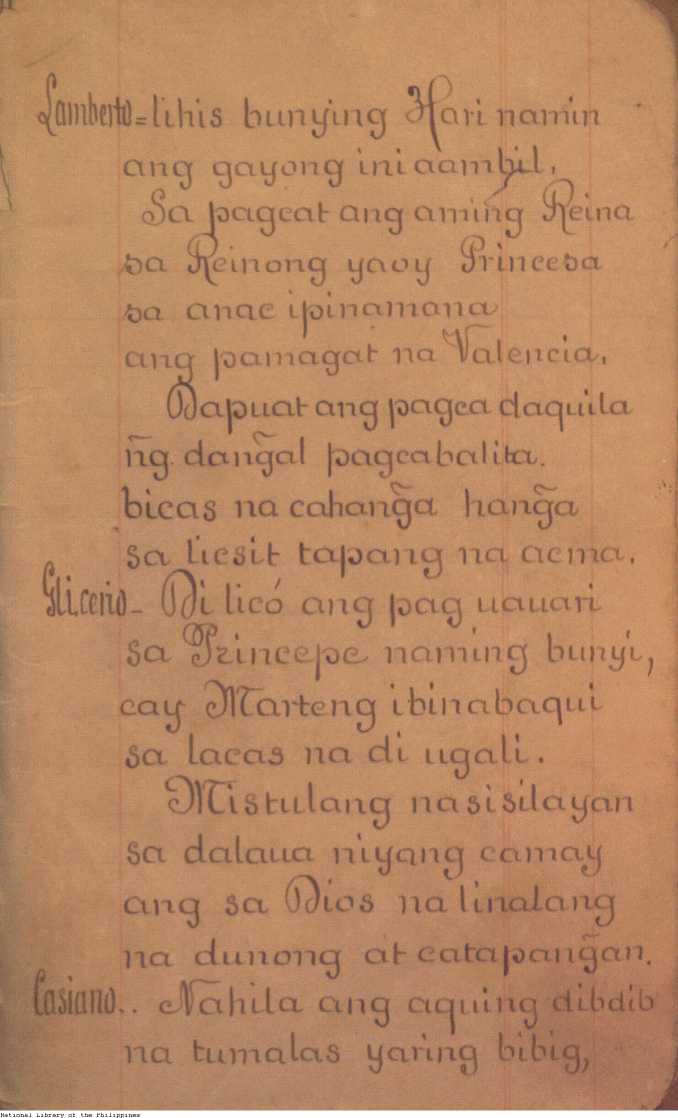 Lamberto = lihis bunying Hari namin
ang gayong iniaambil,
Sa pagcat ang aming Reina
sa Reinong yaoy Princesa
sa anac ipinamana
ang pamagat na Valencia,
Dapuat ang pagca daquila
n͠g. dang̃al pagcabalita.
bicas na cahang̃a hang̃a
sa liesit tapang na acma.
Glicerio - Di licó ang pag uauari
sa Princepe naming bunyi,
cay Marteng ibinabaqui
sa lacas na di ugali.
Mistulang nasisilayan
sa dalaua niyang camay
ang sa Dios na linalang
na dunong at catapang̃an.
Casiano.. Nahila ang aquing dibdib
na tumalas yaring bibig,
National Library of the Philippines